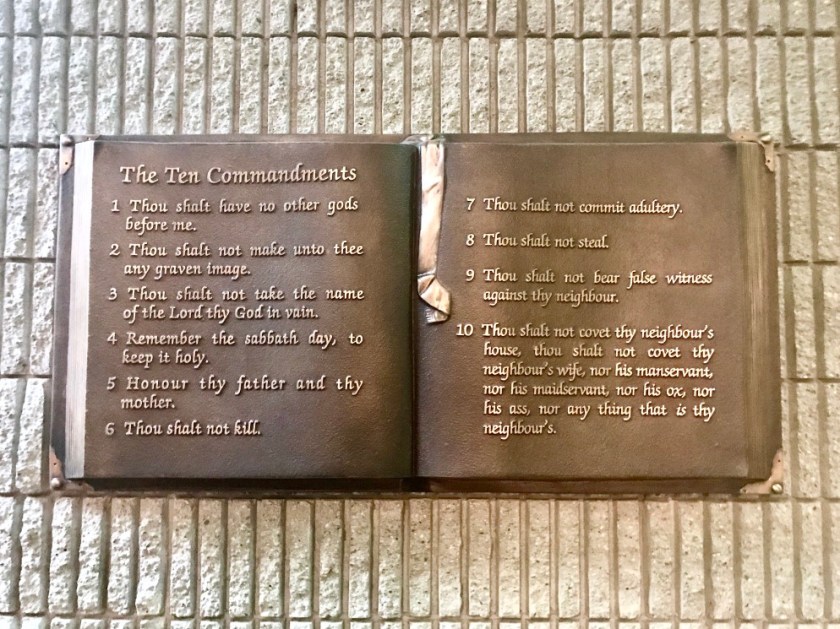 The Ten Commandments
1 Thou shalt have no other gods
before me.
2 Thou shalt not make unto thee
any graven image.
3 Thou shalt not take the name
of the Lord thy God in vain.
4 Remember the sabbath day, to
keep it holy.
5 Honour thy father and thy
mother.
6 Thou shalt not kill.
7 Thou shalt not commit adultery.
8 Thou shalt not steal.
9 Thou shalt not bear false witness
against thy neighbour.
10 Thou shalt not covet thy neighbour's
house, thou shalt not covet thy
neighbour's wife, nor his manservant,
nor his maidservant, nor his ox, nor
his ass, nor any thing that is thy
neighbour's.